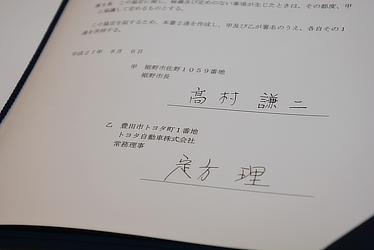 第８条　この協定に関し、疑義及び定めのない事項が生じたときは、その都度、甲
と協議して定めるものとする。
この協定を証するため、本書２通を作成し、甲及び乙が署名のうえ、各自その１
通を所持する。
平成２７年　８月　６日
甲　裾野市佐野１０５９番地
裾野市長
高村謙二
乙　豊田市トヨタ町１番地
トヨタ自動車株式会社
常務理事
定方　理